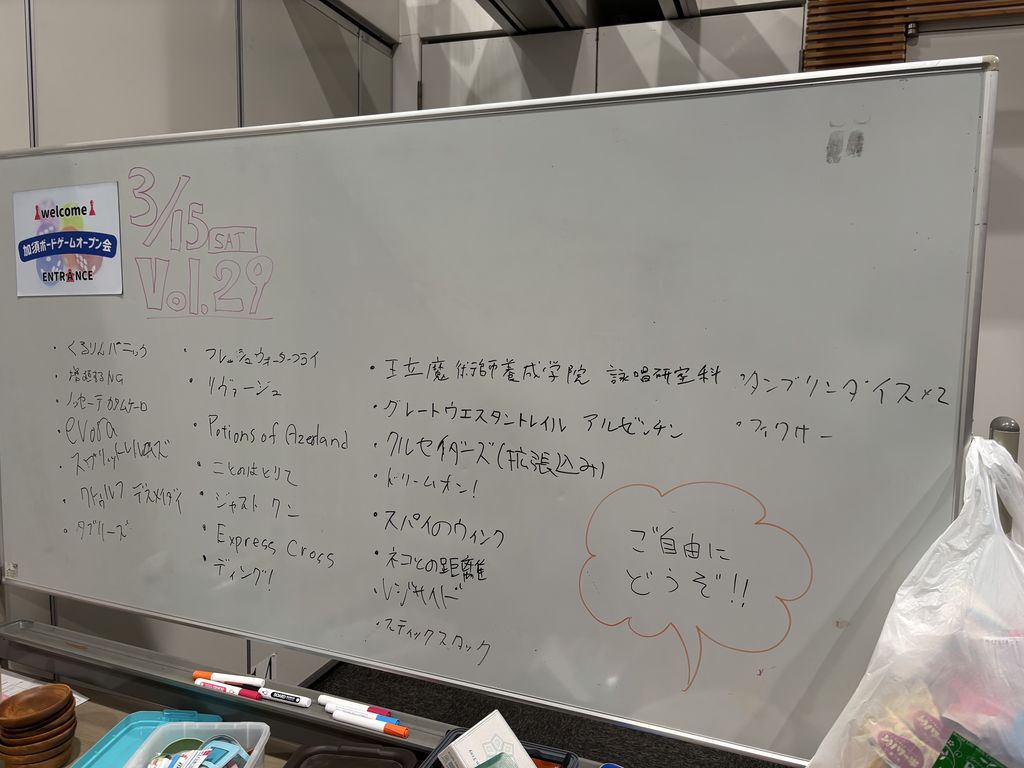 welcome
加須ボードゲームオープン会
ENTRANCE
3/15 SAT
Vol.29
・くるりんパニック
・増殖するNG
・ノッセーテカタムケーロ
evora
・スプリット
・クトゥルフ デスメイダイ
・タブリーズ
・フレッシュウォーターフライ
・リヴァージュ
・Potions of Azerland
・ことのはとりて
・ジャスト ワン
・Express Cross
・ディング!
・王立魔術師養成学院 詠唱研究科
・グレートウエスタントレイル アルゼンチン
・クルセイダーズ(拡張込み)
・ドリームオン!
・スパイのウィンク
・ネコとの距離
・レジサイド
・スティックスタック
・タンブリンダイス×2
・フィクサー
ご自由に
どうぞ!!